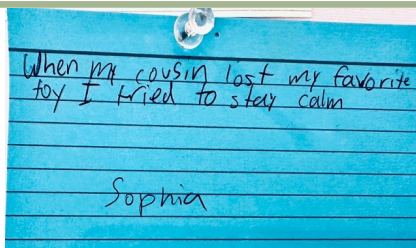 When my cousin lost my favorite
toy I tried to stay calm
Sophia